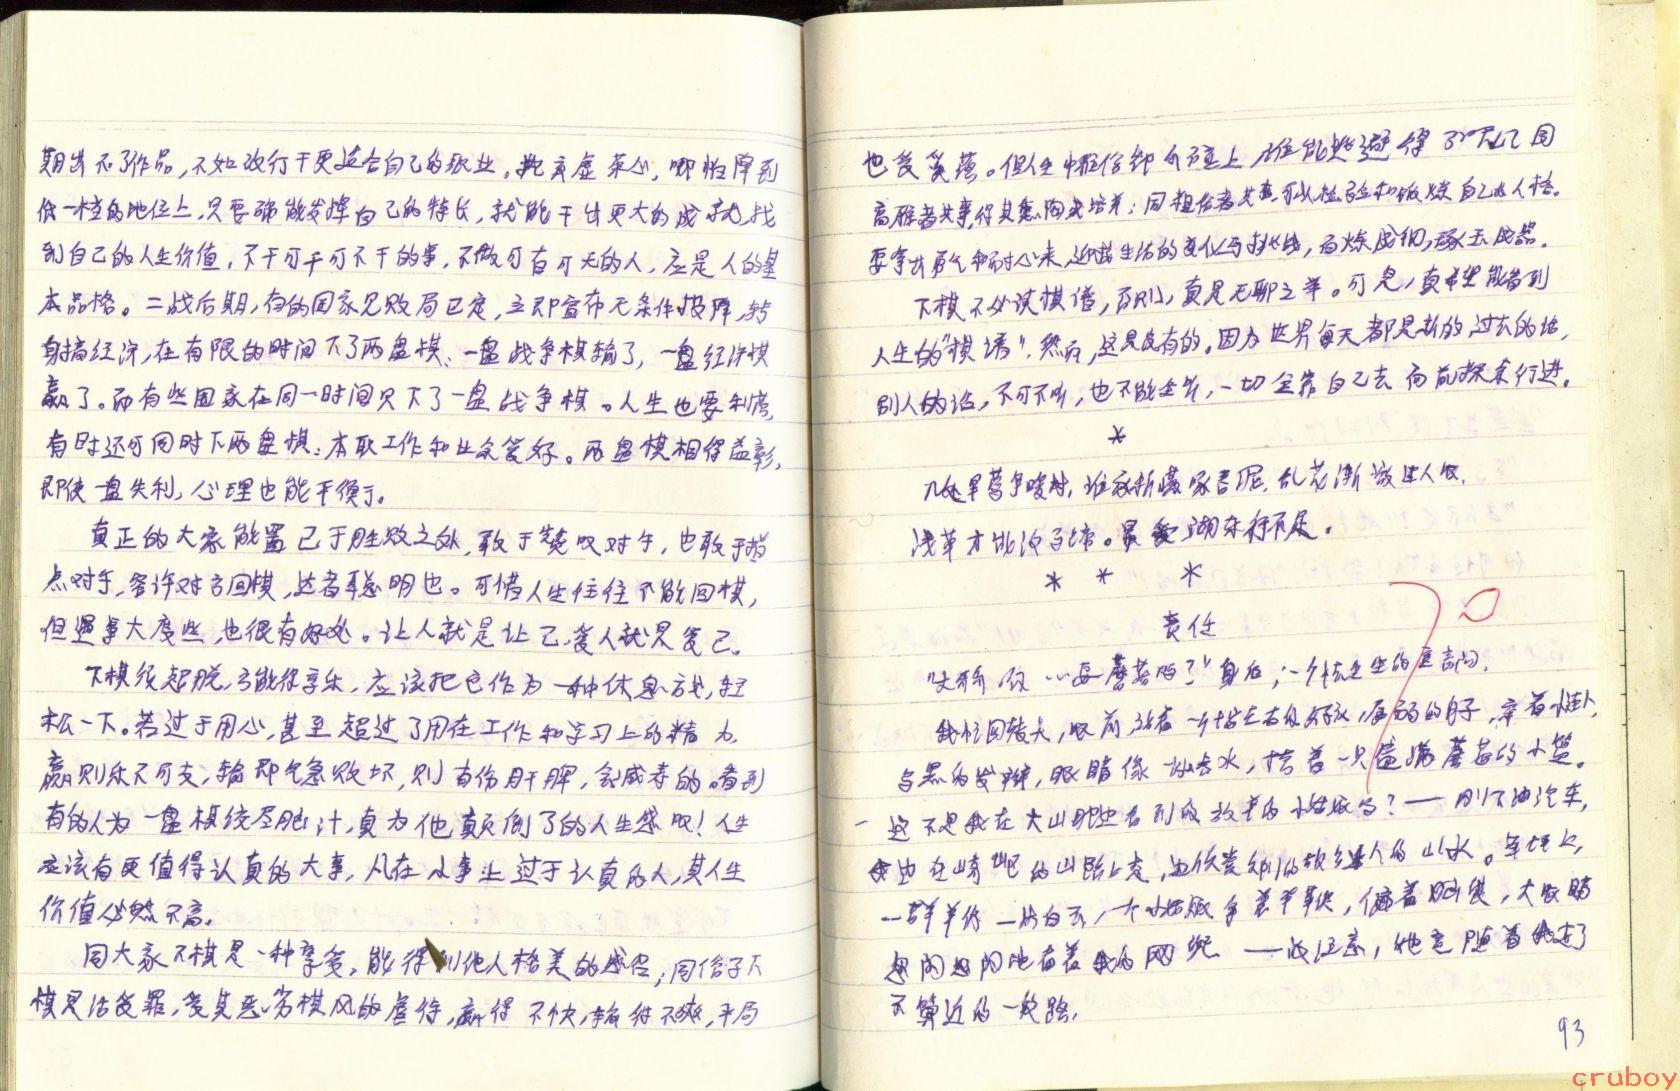 期出不了作品，不如改行干更适合自己的职业。抛弃虚荣心，哪怕降到
低一档的地位上，只要确能发挥自己的特长，就能干出更大的成就，找
到自己的人生价值，不干可干可不干的事，不做可有可无的人，应是人的基
本品格。二战后期，有的国家见败局已定，立即宣布无条件投降，转
身搞经济，在有限的时间下了两盘棋、一盘战争棋输了，一盘经济棋
赢了。而有些国家在同一时间只下了一盘战争棋。人生也要
有时还可同时下两盘棋：本职工作和业余爱好。两盘棋相得益彰，
即使一盘失利，心理也能平衡了。
真正的大家能置己于胜败之外，敢于赞叹对手，也敢于指
点对手，容许对方回棋，达者聪明也。可惜人生往往不能回棋，
但遇事大度些，也很有好处。让人就是让己，爱人就是爱己。
下棋须超脱，方能得享乐，应该把它作为一种休息方式，轻
松一下。若过于用心，甚至超过了用在工作和学习上的精力，
赢则乐不可支，输即气急败坏，则有伤肝脾，会减寿的。看到
有的人为一盘棋绞尽脑汁，真为他颠倒了的人生感叹！人生
应该有更值得认真的大事，凡在小事上过于认真的人，其人生
价值必然不高。
同大家下棋是一种享受，能得到他人格美的感召，同俗子下
棋是活受罪，受其恶劣棋风的虐待，赢得不快，输得不爽，平局
也受奚落。但人生中粗俗
高雅者共事，得其熏陶或培养；同粗俗者共事，可以检验和锻炼自己的人格。
要拿出勇气和耐心来，迎接生活的变化与挑战，百炼成钢，琢玉成器。
下棋不必读棋谱，否则，真是无聊之举。可是，真希望能看到
人生的“棋谱”，然而，这是没有的。因为世界每天都是新的，过去的话，
别人的话，不可不听，也不能全听，一切全靠自己去向前探索行进。
*
几处早莺争暖树，谁家新燕啄春泥，乱花渐欲迷人眼，
浅草才能没马蹄。最爱湖东行不足。
* * *
责任
蘑菇吗？”身后，一个怯生生的童音问，
我忙回转头，眼前站着一个十岁左右的女孩，
乌黑的发辫，眼睛像一泓秋水，挎着一只盖满蘑菇的小篮。
这不是我在大山脚边看到的放羊的小姑娘吗？——刚下汽车，
我走在崎岖的山路上，山水。草坡上，
一群羊像一片白云，一个小姑娘，大眼睛
忽闪忽闪地看着我的——没注意，她竟随着我走了
不算近的一段路，
93
cruboy